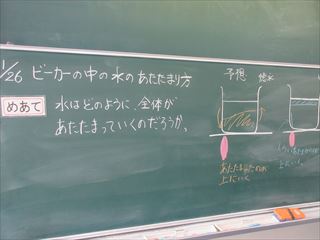 1/26 ビーカーの中の水のあたたまり方
めあて 水はどのように、全体が
あたたまっていくのだろうか。
予想
あたたまったのが
上にいく
上にいく